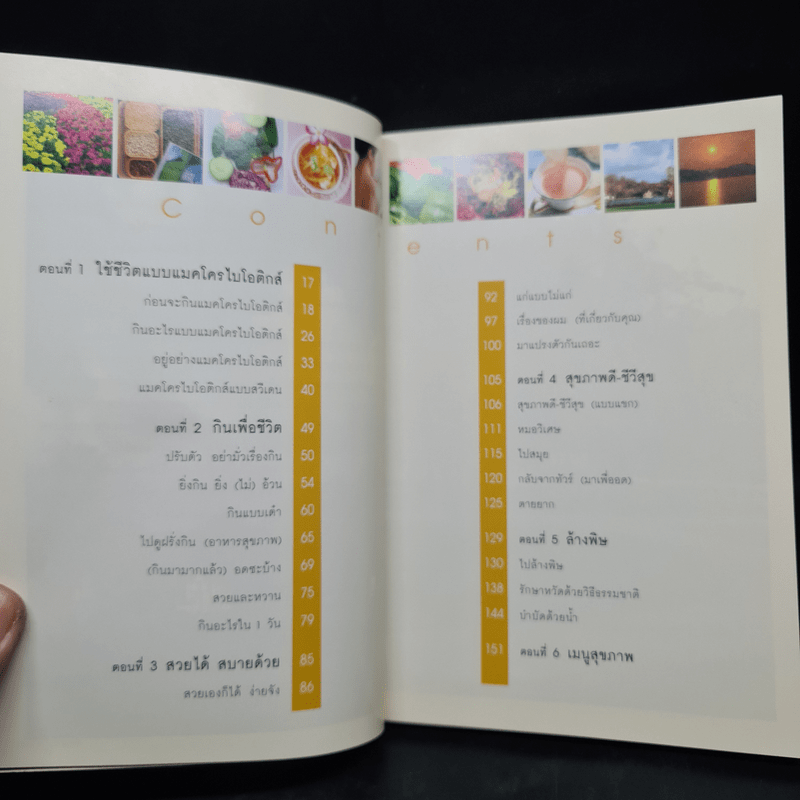 Contents
ตอนที่ 1 ใช้ชีวิตแบบแมคโครไบโอติกส์ 17
ก่อนจะกินแมคโครไบโอติกส์ 18
กินอะไรแบบแมคโครไบโอติกส์ 26
อยู่อย่างแมคโครไบโอติกส์ 33
แมคโครไบโอติกส์แบบสวีเดน 40
ตอนที่ 2 กินเพื่อชีวิต 49
ปรับตัว อย่ามั่วเรื่องกิน 50
ยิ่งกิน ยิ่ง (ไม่) อ้วน 54
กินแบบเต๋า 60
ไปดูฝรั่งกิน (อาหารสุขภาพ) 65
(กินมามากแล้ว) อดซะบ้าง 69
สวยและหวาน 75
กินอะไรใน 1 วัน 79
ตอนที่ 3 สวยได้ สบายด้วย 85
สวยเองก็ได้ ง่ายจัง 86
92 แก่แบบไม่แก่
97 เรื่องของผม (ที่เกี่ยวกับคุณ)
100 มาแปรงตัวกันเถอะ
105 ตอนที่ 4 สุขภาพดี-ชีวีสุข
106 สุขภาพดี-ชีวีสุข (แบบแขก)
111 หมอวิเศษ
115 ไปสมุย
120 กลับจากทัวร์ (มาเพื่ออด)
125 ตายยาก
129 ตอนที่ 5 ล้างพิษ
130 ไปล้างพิษ
138 รักษาหวัดด้วยวิธีธรรมชาติ
144 บำบัดด้วยน้ำ
151 ตอนที่ 6 เมนูสุขภาพ